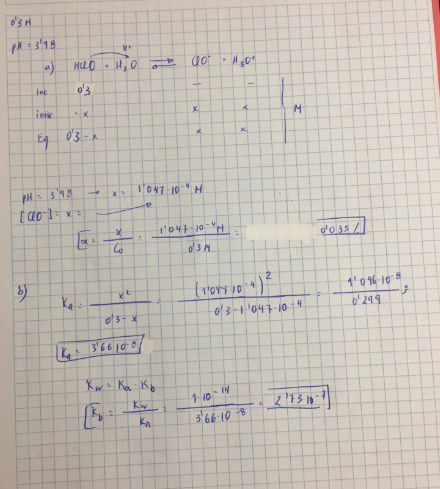 0'3 M
pH = 3'98
H⁺
a) HClO + H₂O ⇌ ClO⁻ + H₃O⁺
Inc 0'3 — —
- x x x M
Eq 0'3 - x x x
pH = 3'98 → x = 1'047·10⁻⁴ M
[ClO⁻] = x =
α = x / C₀ = 1'047·10⁻⁴ M / 0'3 M = 0'035 %
b) Ka = x² / 0'3 - x = (1'047·10⁻⁴)² / 0'3 - 1'047·10⁻⁴ = 1'096·10⁻⁸ / 0'299 ;
Ka = 3'66·10⁻⁸
Kw = Ka · Kb
Kb = Kw / Ka = 1·10⁻¹⁴ / 3'66·10⁻⁸ = 2'73·10⁻⁷